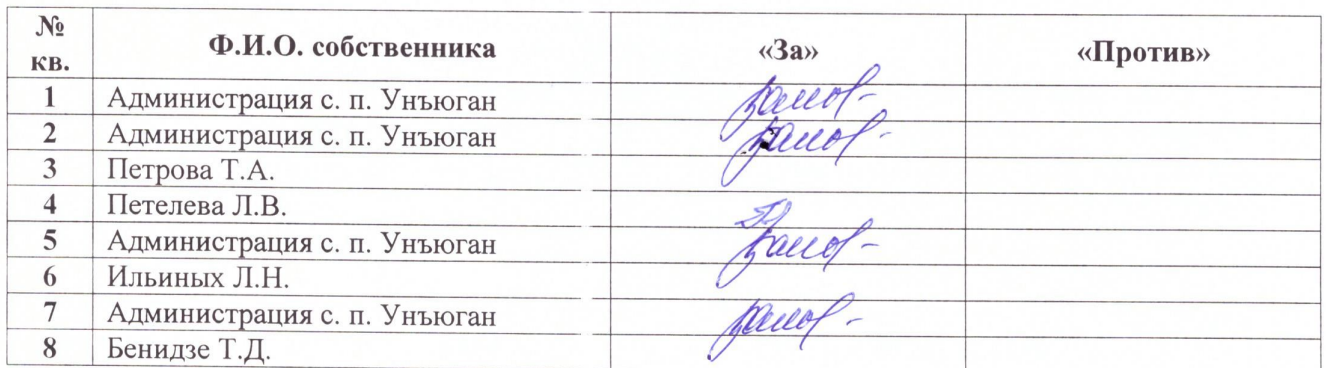 № кв. Ф.И.О. собственника «За» «Против»
1 Администрация с. п. Унъюган
2 Администрация с. п. Унъюган
3 Петрова Т.А.
4 Петелева Л.В.
5 Администрация с. п. Унъюган
6 Ильиных Л.Н.
7 Администрация с. п. Унъюган
8 Бенидзе Т.Д.